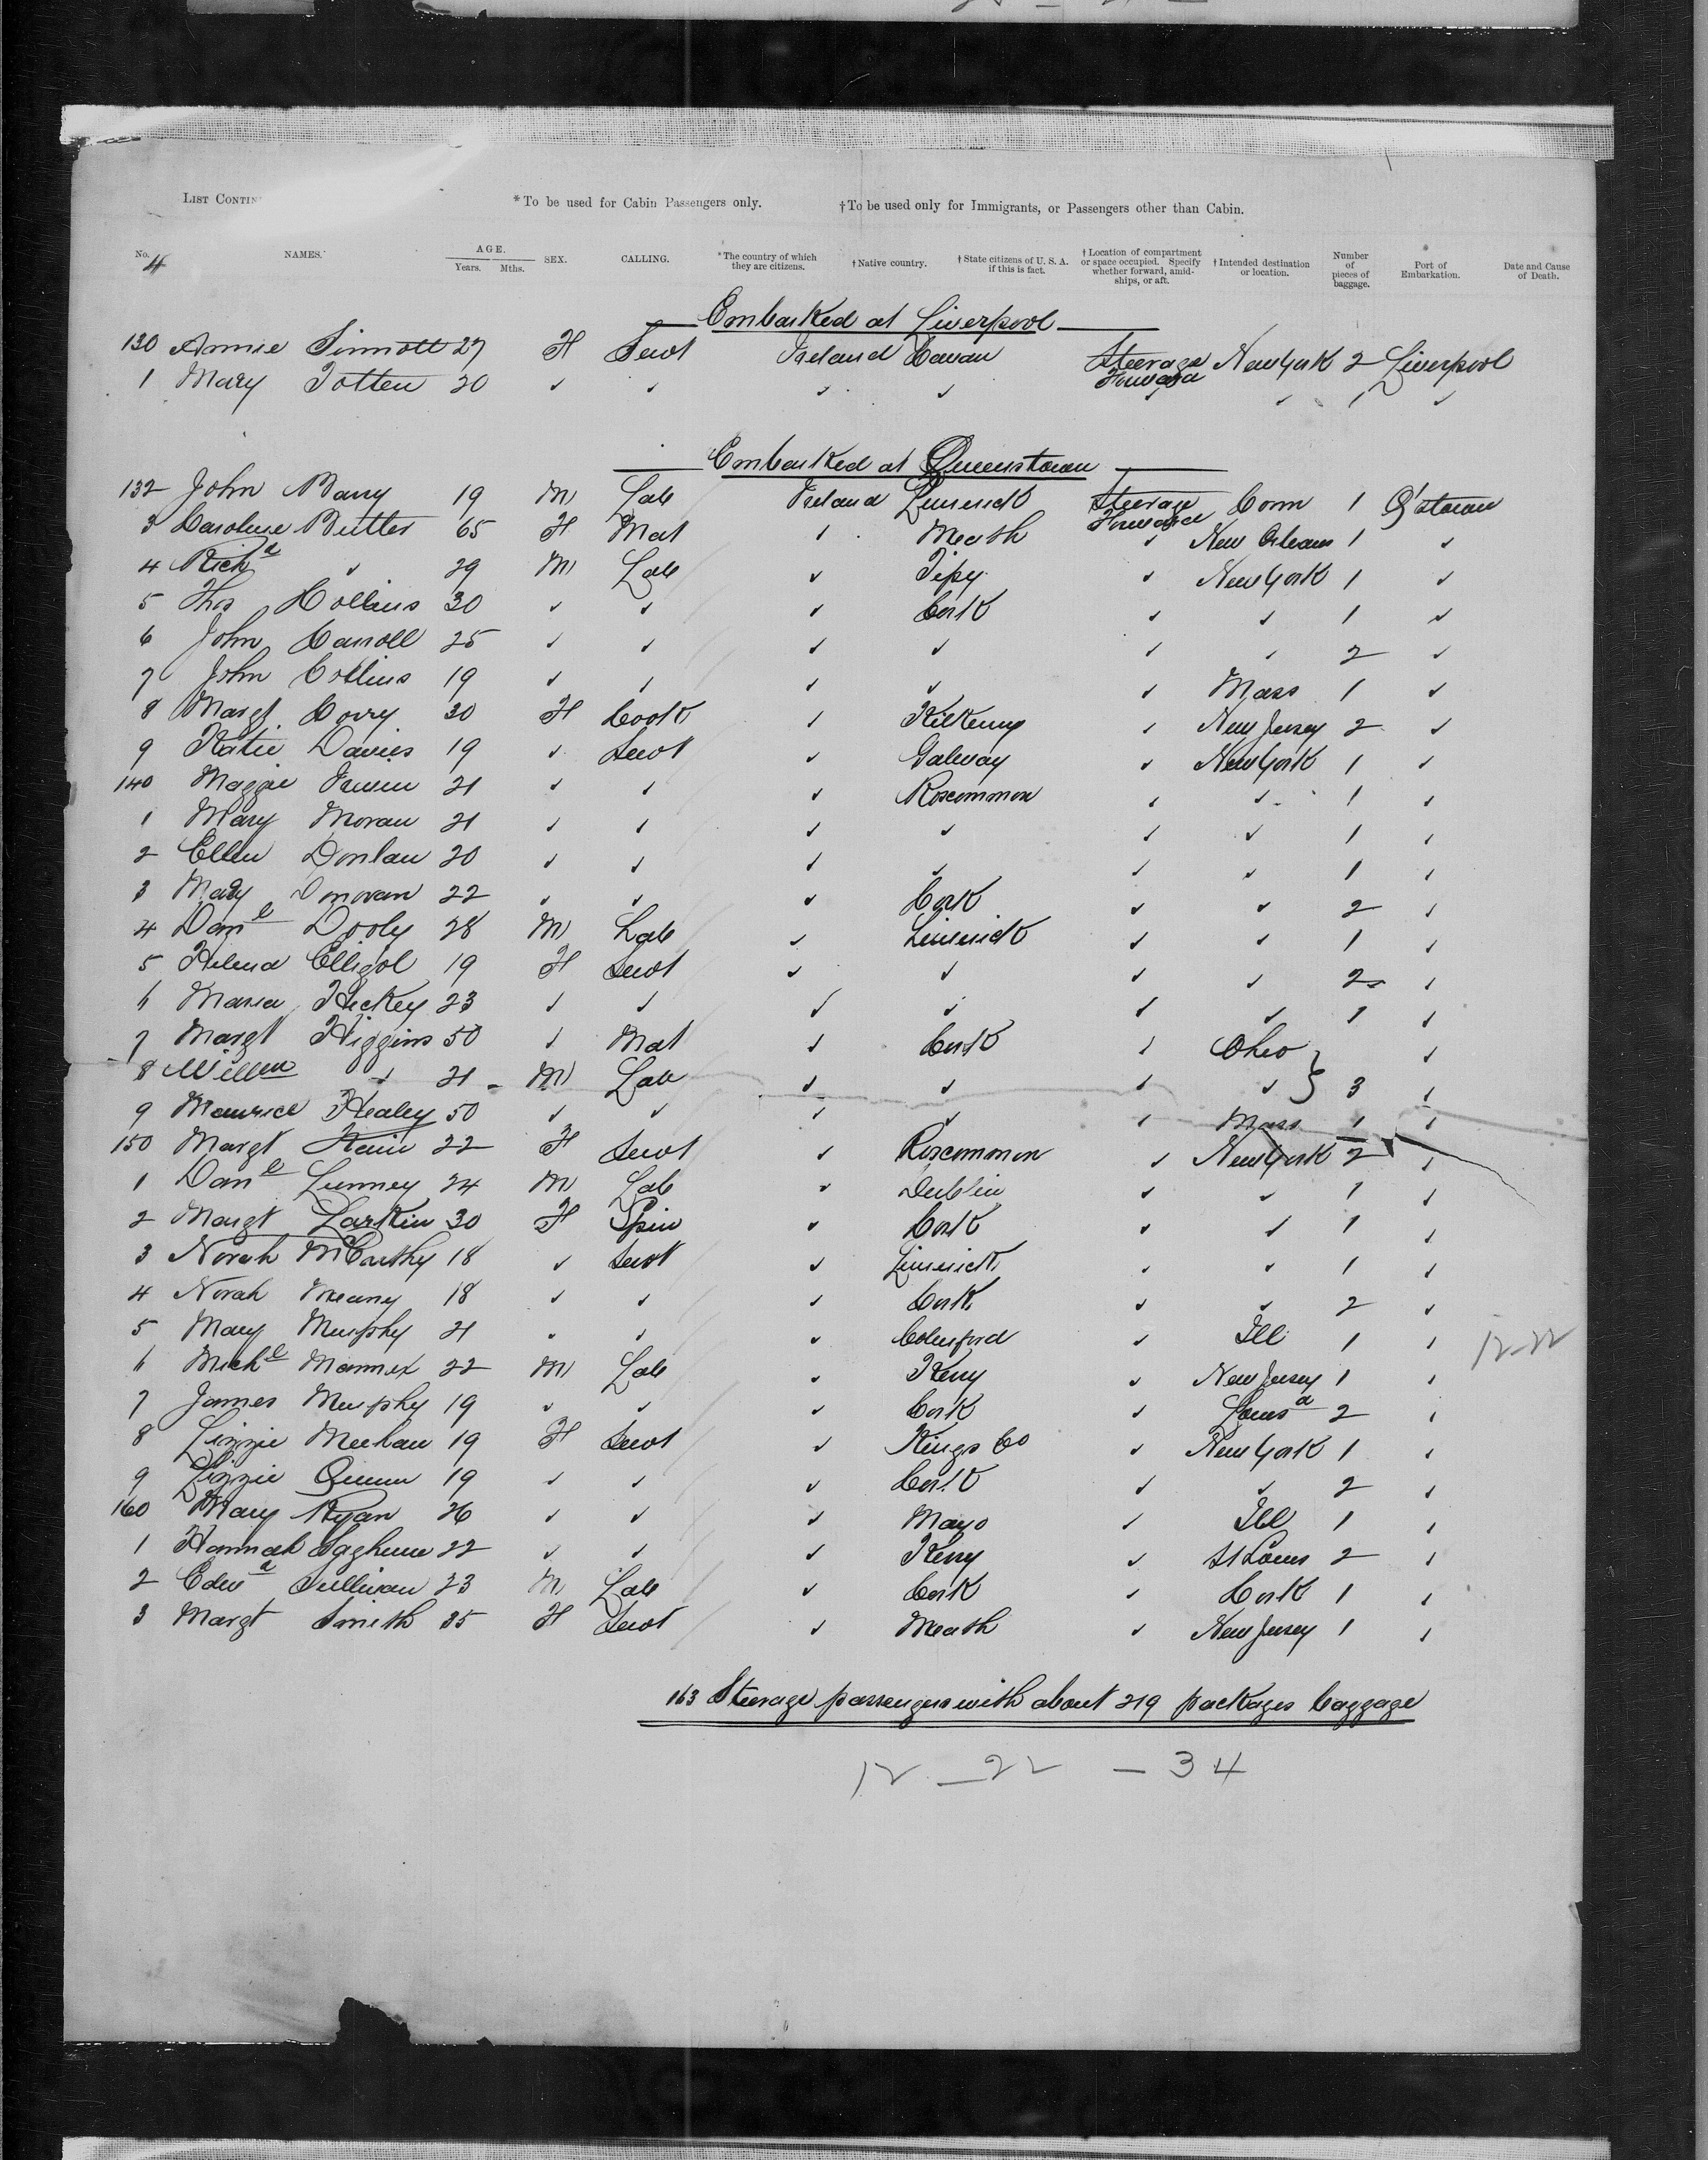 LIST CONTIN
*To be used for Cabin Passengers only. †To be used only for Immigrants, or Passengers other than Cabin.
No. 4 NAMES. AGE. Years. Mths. SEX. CALLING. *The country of which they are citizens. †Native country. †State citizens of U. S. A. if this is fact. †Location of compartment or space occupied. Specify whether forward, amidships, or aft. †Intended destination or location. Number of pieces of baggage. Port of Embarkation. Date and Cause of Death.
Embarked at Liverpool
130 Annie Sinnott 27 F Servt Ireland Cavan Steerage Forward New York 2 Liverpool
1 Mary Totten 20 " " " " " " 1 "
Embarked at Queenstown
132 John Barry 19 M Lab Ireland Limerick Steerage Forward Conn 1 Q'stown
3 Caroline Butler 65 F Mat " Meath " New Orleans 1 "
4 Richd " 29 M Lab " Tipy " New York 1 "
5 Thos Collins 30 " " " Cork " " 1 "
6 John Carroll 25 " " " " " " 2 "
7 John Collins 19 " " " " " Mass 1 "
8 Margt Corry 30 F Cook " Kilkenny " New Jersey 2 "
9 Katie Davies 19 " Servt " Galway " New York 1 "
140 Maggie 21 " " " Roscommon " " 1 "
1 Mary Moran 21 " " " " " " 1 "
2 Ellen Donlan 20 " " " " " " 1 "
3 Mary Donovan 22 " " " Cork " " 2 "
4 Danl Dooly 28 M Lab " Limerick " " 1 "
5 Helena Elligol 19 F Servt " " " " 2 "
6 Maria Hickey 23 " " " " " " 1 "
7 Margt Higgins 50 " Mat " Cork " Ohio "
8 Willm " 21 M Lab " " " " 3 "
9 Maurice Healey 50 " " " " " Mass 1 "
150 Margt 22 F Servt " Roscommon " New York 2 "
1 Danl Lunney 24 M Lab " Dublin " " 1 "
2 Margt Larkin 30 F Spin " Cork " " 1 "
3 Norah McCarthy 18 " Servt " Limerick " " 1 "
4 Norah Meany 18 " " " Cork " " 2 "
5 Mary Murphy 21 " " " " Ill 1 " 12-22
6 Michl Mannix 22 M Lab " Kerry " New Jersey 1 "
7 James Murphy 19 " " " Cork " Louisa 2 "
8 Lizzie Meehan 19 F Servt " Kings Co " New York 1 "
9 Lizzie Quinn 19 " " " Cork " " 2 "
160 Mary Ryan 26 " " " Mayo " Ill 1 "
1 Hannah 22 " " " Kerry " St Louis 2 "
2 Edwd Sullivan 23 M Lab " Cork " Cork 1 "
3 Margt Smith 35 F Servt " Meath " New Jersey 1 "
163 Steerage passengers with about 219 packages baggage
12 - 22 - 34